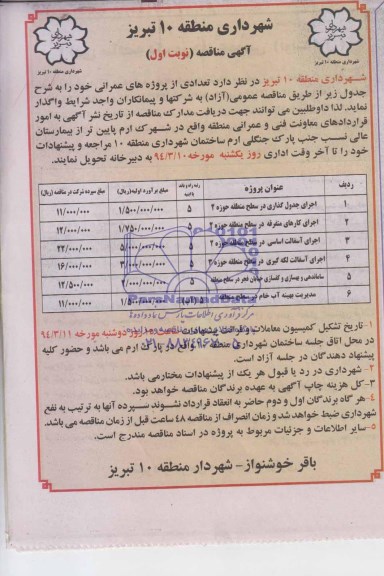 شهرداری منطقه ۱۰ تبریز
آگهی مناقصه (نوبت اول)
شهرداری منطقه ۱۰ تبریز
شهرداری منطقه ۱۰ تبریز
شهرداری منطقه ۱۰ تبریز در نظر دارد تعدادی از پروژه های عمرانی خود را به شرح
جدول زیر از طریق مناقصه عمومی(آزاد) به شرکتها و پیمانکاران واجد شرایط واگذار
نماید. لذا داوطلبین می توانند جهت دریافت مدارک مناقصه از تاریخ نشر آگهی به امور
قراردادهای معاونت فنی و عمرانی منطقه واقع در شهرک ارم پایین تر از بیمارستان
عالی نسب جنب پارک جنگلی ارم ساختمان شهرداری منطقه ۱۰ مراجعه و پیشنهادات
خود را تا آخر وقت اداری روز یکشنبه مورخه ۹۴/۳/۱۰ به دبیرخانه تحویل نمایند.
ردیف عنوان پروژه مبلغ برآورد اولیه(ریال) مبلغ سپرده شرکت در مناقصه (ریال)
۱ اجرای جدول گذاری در سطح منطقه حوزه ۲ ۵ ۱/۵۰۰/۰۰۰/۰۰۰ ۱۱/۰۰۰/۰۰۰
۲ اجرای کارهای متفرقه در سطح منطقه حوزه ۲ ۵ ۱/۷۵۰/۰۰۰/۰۰۰ ۱۲/۰۰۰/۰۰۰
۳ اجرای آسفالت اساسی در سطح منطقه حوزه ۲ ۵ ۲۲/۰۰۰/۰۰۰
۴ اجرای آسفالت لکه گیری در سطح منطقه حوزه ۲ ۵ ۱۶/۰۰۰/۰۰۰
۵ ساماندهی و بهسازی و کفسازی خیابان فجر در سطح منطقه ۵ ۱۲/۵۰۰/۰۰۰
۶ مدیریت بهینه آب خام در سطح منطقه ۱۱/۰۰۰/۰۰۰
ParsNamadData
۰۲۱-۸۸۳۴۹۶۷۰
۱-تاریخ تشکیل کمیسیون معاملات روز دوشنبه مورخه ۹۴/۳/۱۱
در محل اتاق جلسه ساختمان شهرداری منطقه ۱۰ واقع در پارک ارم می باشد و حضور کلیه
پیشنهاد دهندگان در جلسه آزاد است.
۲- شهرداری در رد یا قبول هر یک از پیشنهادات مختارمی باشد.
۳-کل هزینه چاپ آگهی به عهده برندگان مناقصه خواهد بود.
۴-هر گاه برندگان اول و دوم حاضر به انعقاد قرارداد نشوند سپرده آنها به ترتیب به نفع
شهرداری ضبط خواهد شد و زمان انصراف از مناقصه ۴۸ ساعت قبل از زمان مناقصه می باشد.
۵-سایر اطلاعات و جزئیات مربوط به پروژه در اسناد مناقصه مندرج است.
باقر خوشنواز- شهردار منطقه ۱۰ تبریز